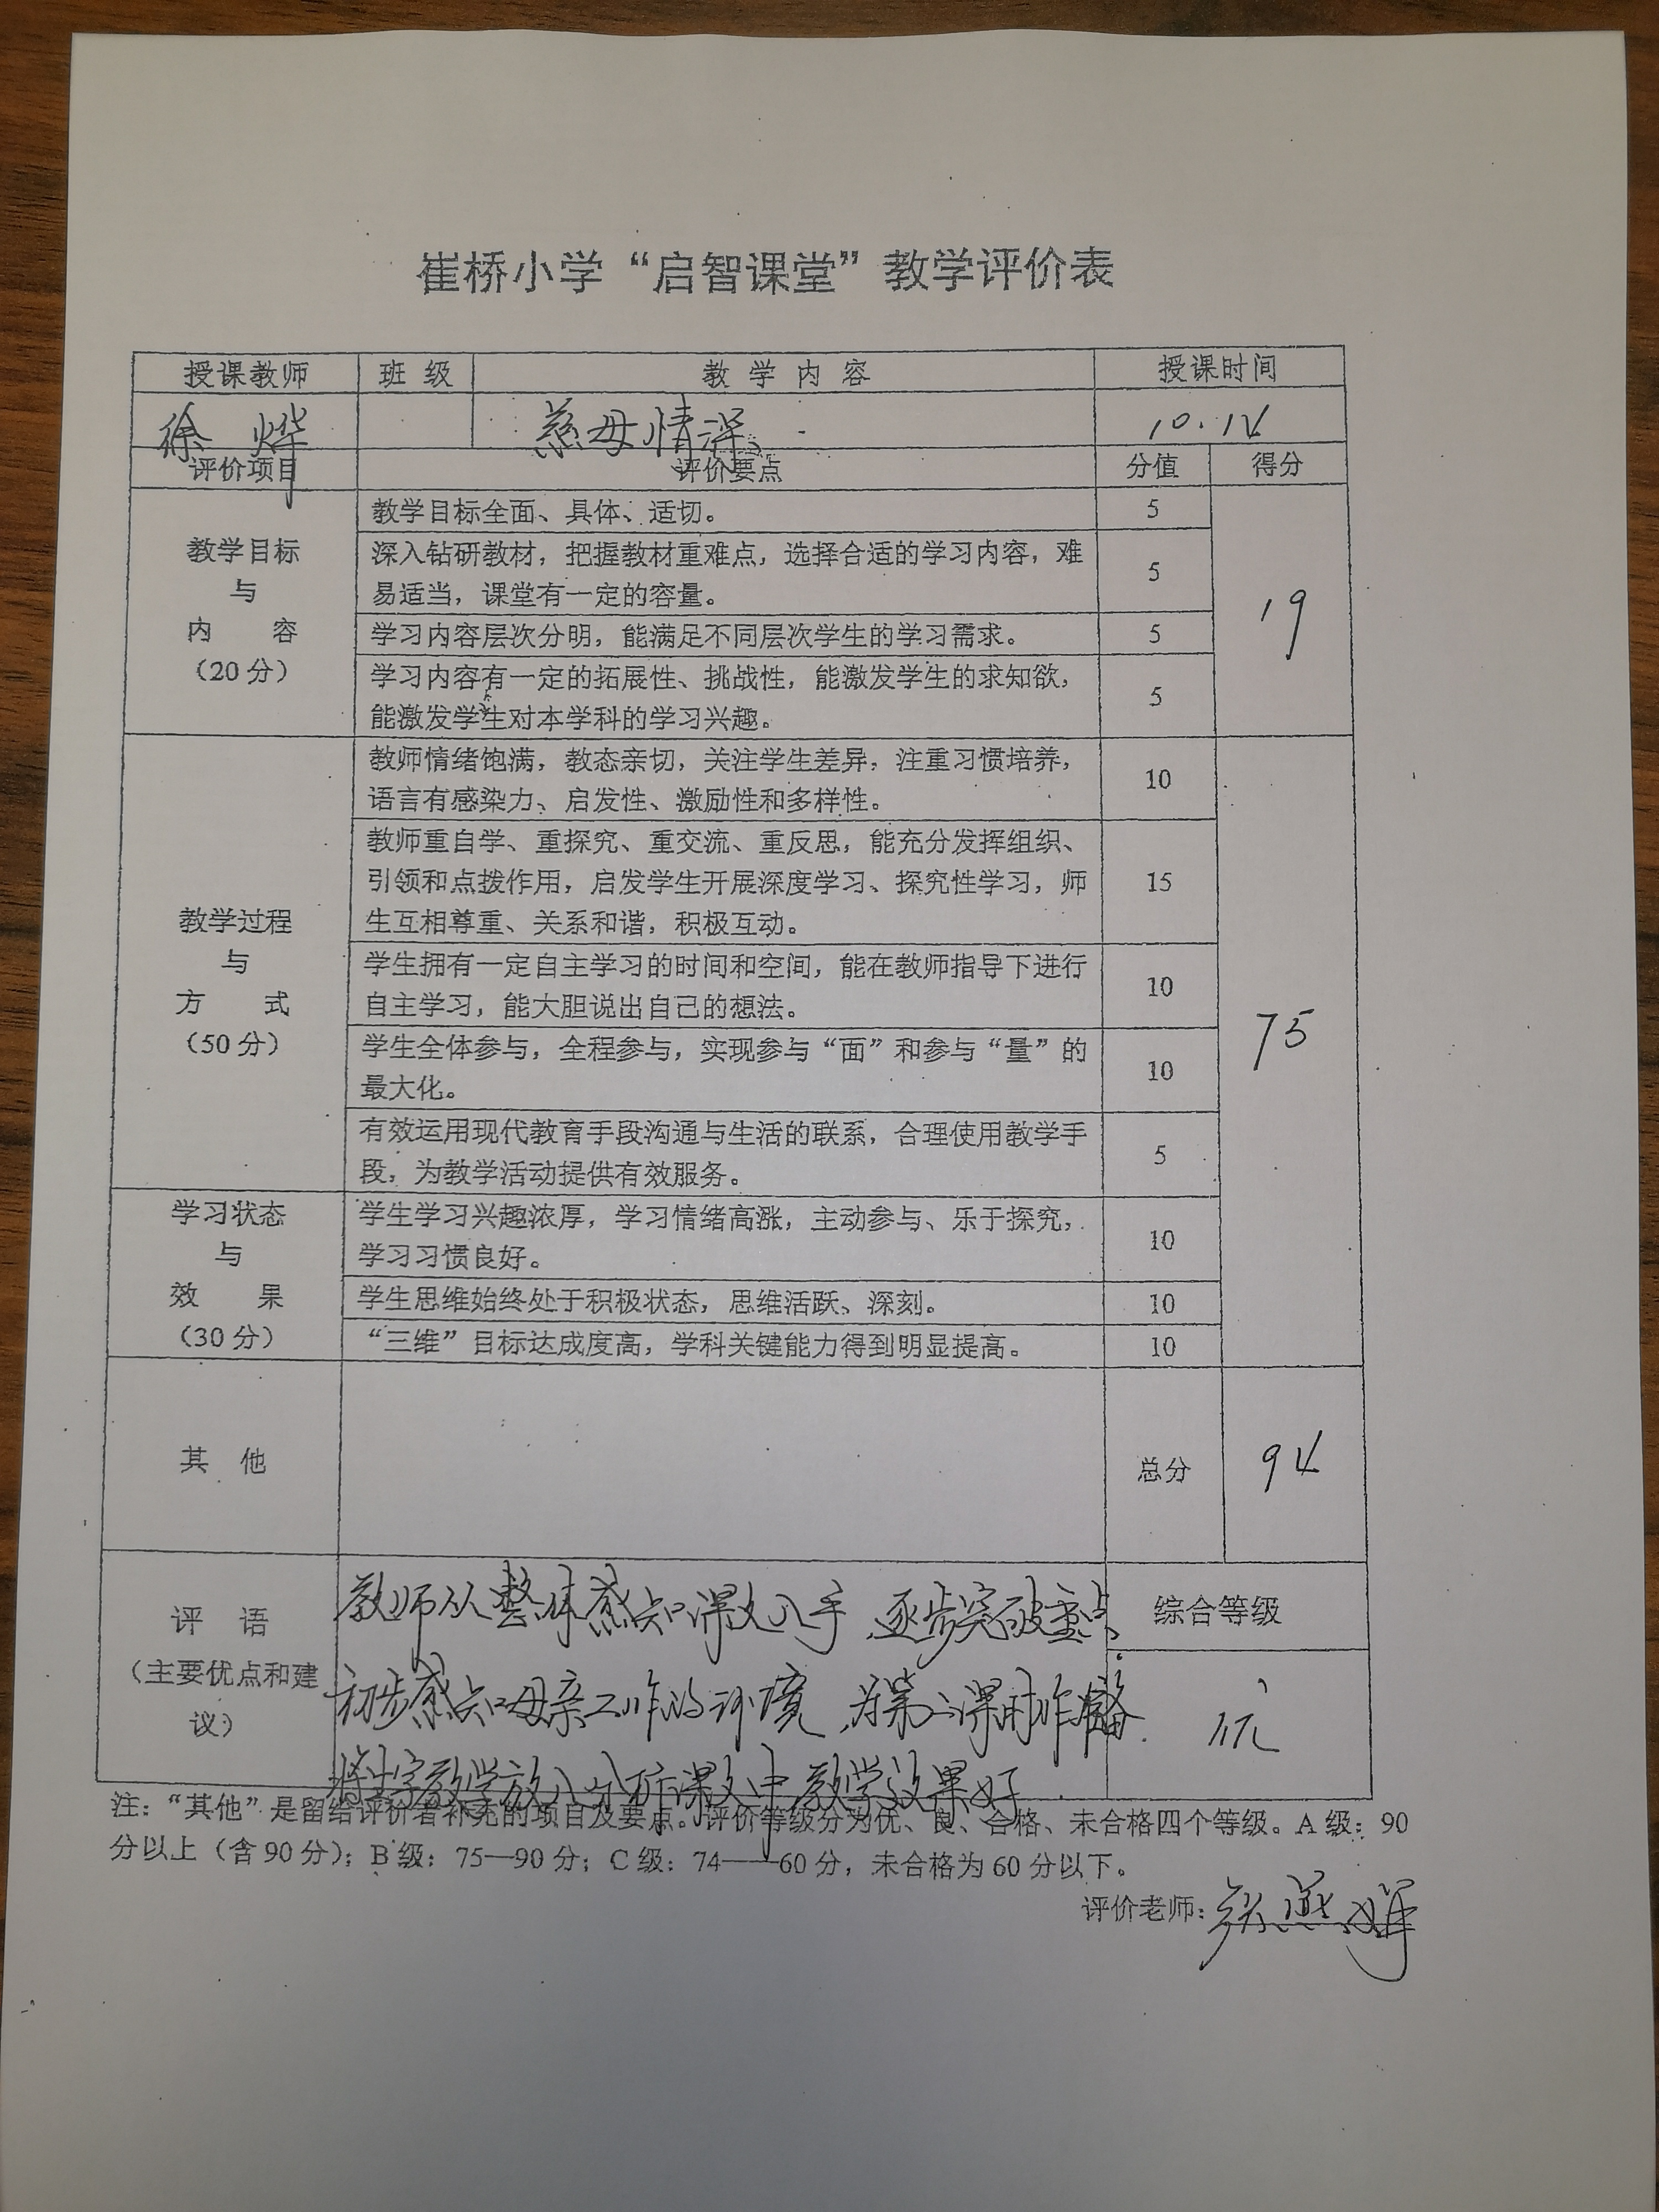 崔桥小学“启智课堂”教学评价表
授课教师 班 级 教 学 内 容 授课时间
徐 烨 慈母情深 10.14
评价项目 评价要点 分值 得分
教学目标
与
内 容
(20分)
教学目标全面、具体、适切。 5
深入钻研教材，把握教材重难点，选择合适的学习内容，难
易适当，课堂有一定的容量。 5
学习内容层次分明，能满足不同层次学生的学习需求。 5
学习内容有一定的拓展性、挑战性，能激发学生的求知欲，
能激发学生对本学科的学习兴趣。 5
19
教学过程
与
方 式
(50分)
教师情绪饱满，教态亲切，关注学生差异，注重习惯培养，
语言有感染力、启发性、激励性和多样性。 10
教师重自学、重探究、重交流、重反思，能充分发挥组织、
引领和点拨作用，启发学生开展深度学习、探究性学习，师
生互相尊重、关系和谐，积极互动。 15
学生拥有一定自主学习的时间和空间，能在教师指导下进行
自主学习，能大胆说出自己的想法。 10
学生全体参与，全程参与，实现参与“面”和参与“量”的
最大化。 10
有效运用现代教育手段沟通与生活的联系，合理使用教学手
段，为教学活动提供有效服务。 5
75
学习状态
与
效 果
(30分)
学生学习兴趣浓厚，学习情绪高涨，主动参与、乐于探究，
学习习惯良好。 10
学生思维始终处于积极状态，思维活跃、深刻。 10
“三维”目标达成度高，学科关键能力得到明显提高。 10
其 他 总分 94
评 语
（主要优点和建
议）
教师从整体感知课文入手，逐步突破重点
初步感知母亲工作的环境，为第二课时作准备.
将生字教学放入分析课文中，教学效果好
综合等级
优
注：“其他”是留给评价者补充的项目及要点。评价等级分为优、良、合格、未合格四个等级。A 级：90
分以上（含 90 分）；B 级：75—90 分；C 级：74——60 分，未合格为 60 分以下。
评价老师：